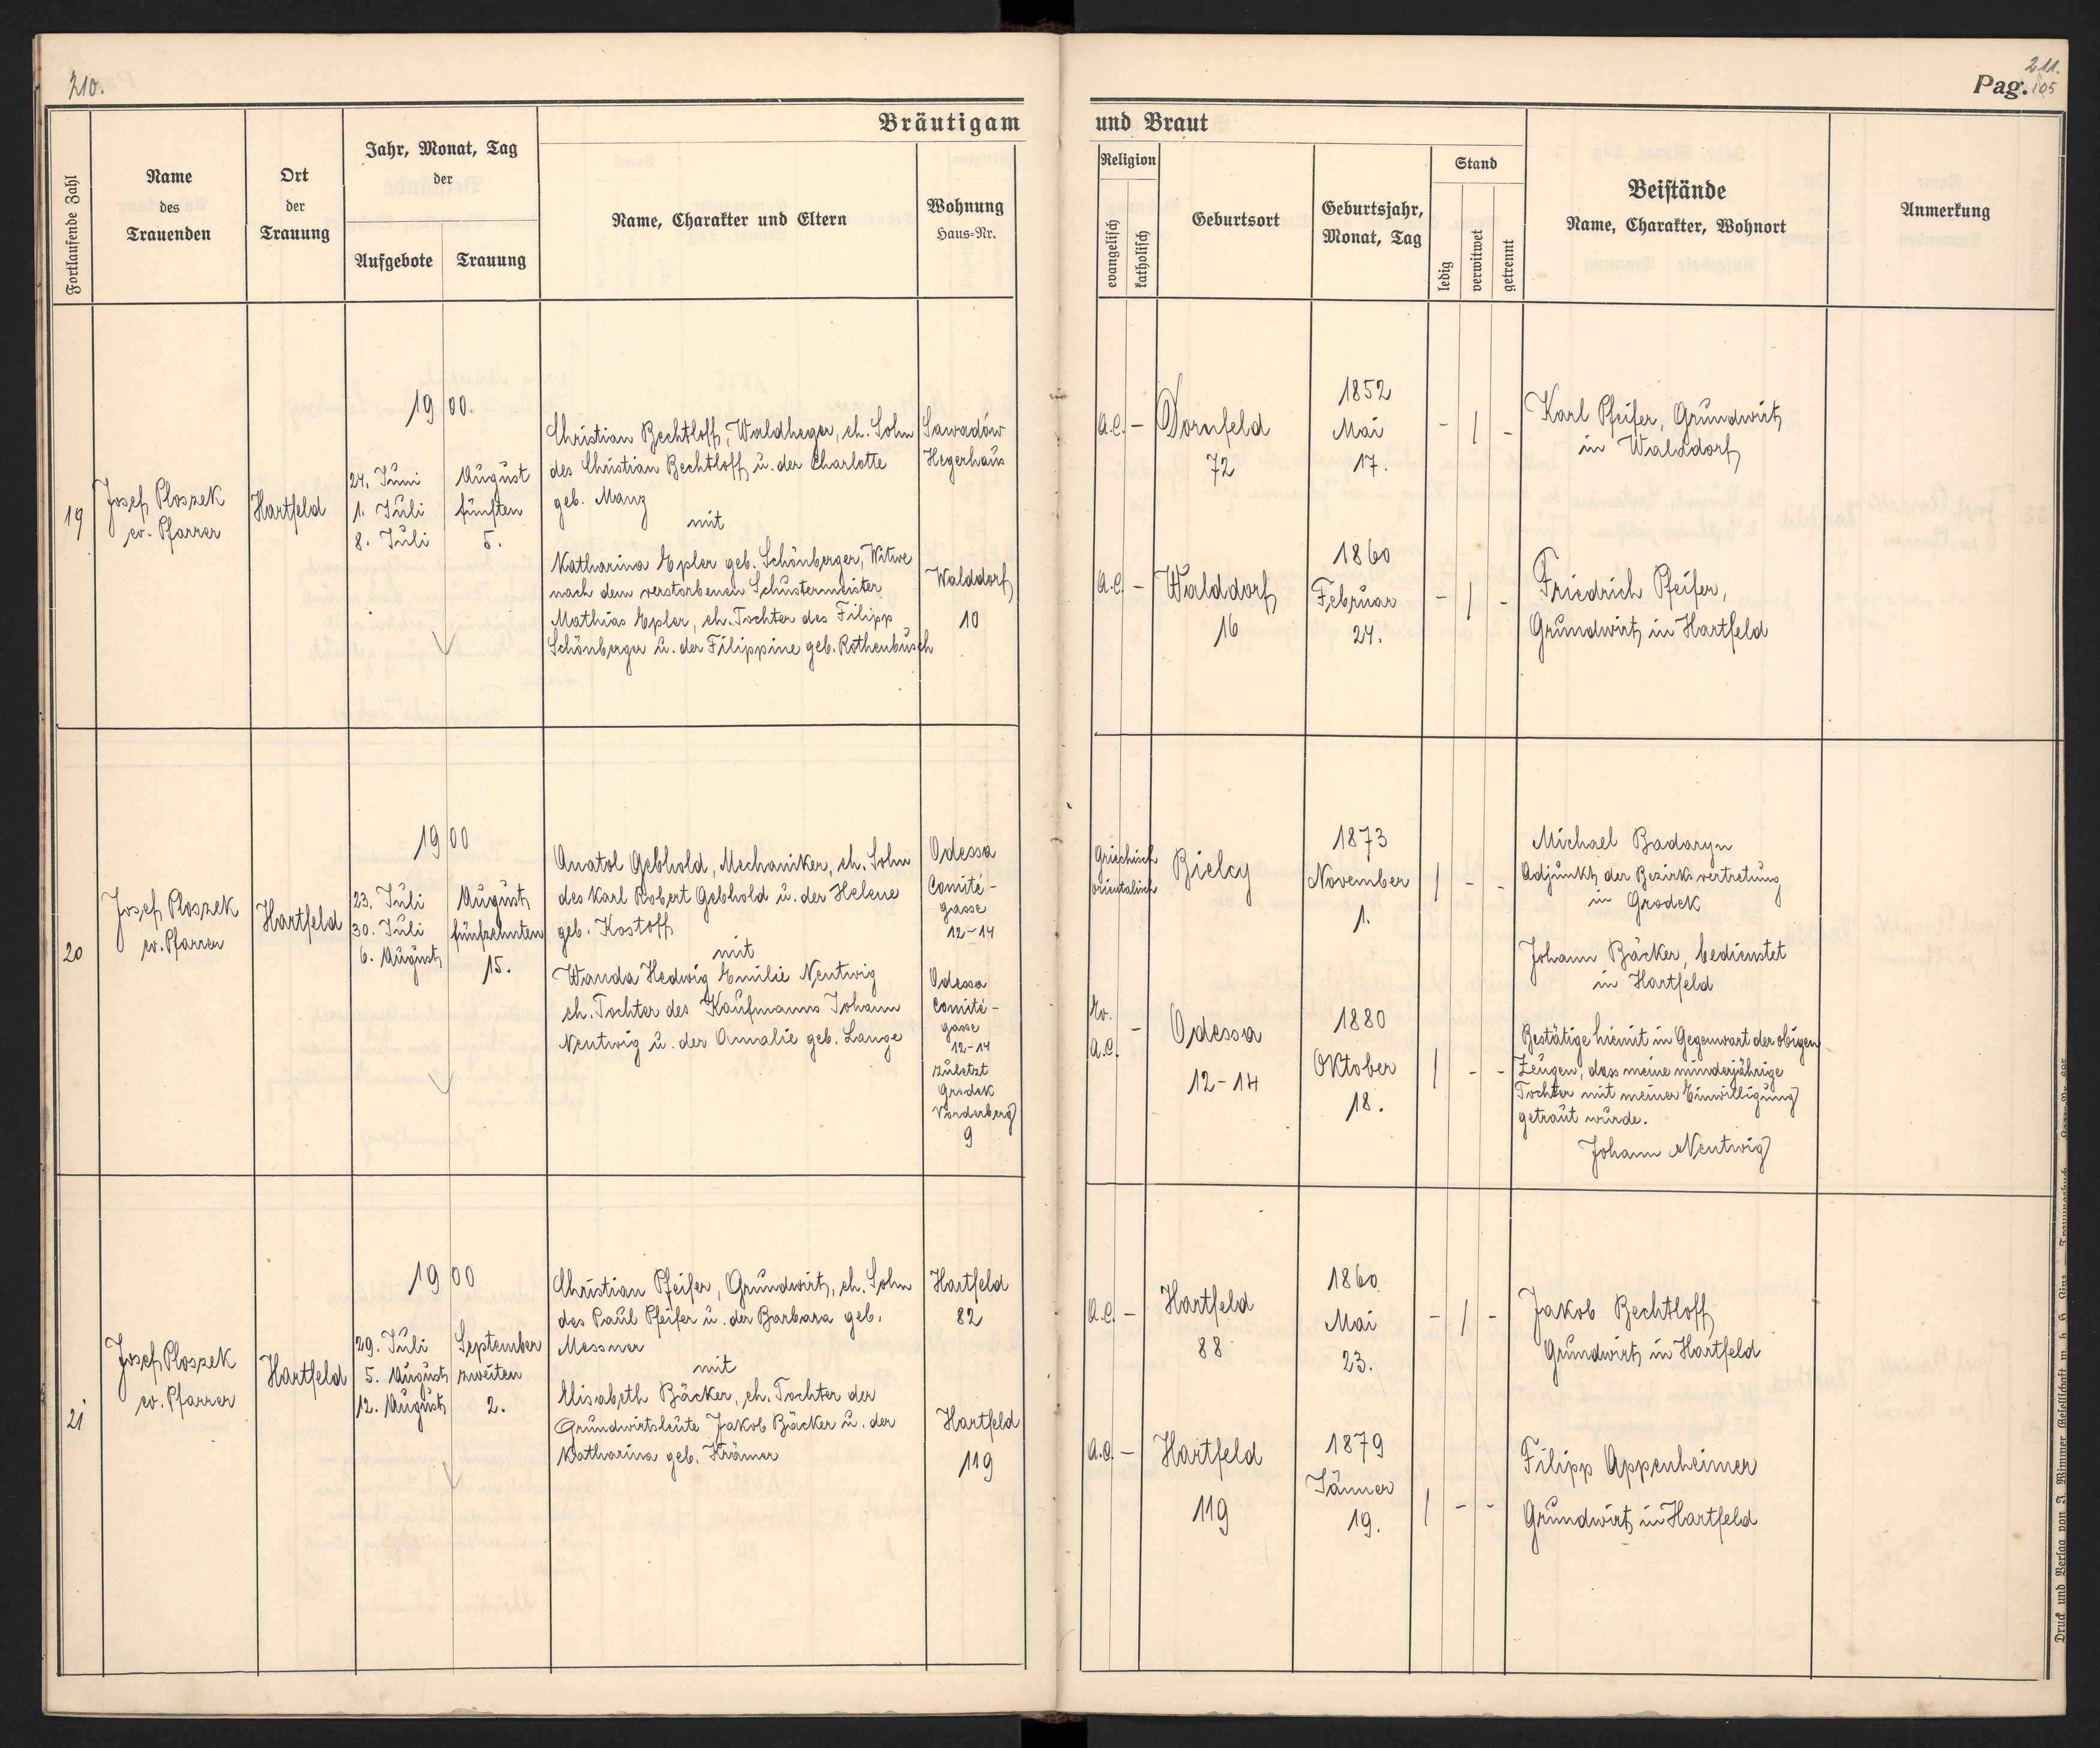 210.
211.
Pag. 105
Bräutigam
und Braut
Fortlaufende Zahl
Name
des
Trauenden
Ort
der
Trauung
Jahr, Monat, Tag
der
Aufgebote
Trauung
Name, Charakter und Eltern
Wohnung
Haus=Nr.
Religion
evangelisch
katholisch
Geburtsort
Geburtsjahr,
Monat, Tag
Stand
ledig
verwitwet
getrennt
Beistände
Name, Charakter, Wohnort
Anmerkung
19
Josef Ploszek
ev. Pfarrer
Hartfeld
1900.
24. Juni
1. Juli
8. Juli
August
fünften
5.
Christian Bechtloff, Waldheger, eh. Sohn
des Christian Bechtloff u. der Charlotte
geb. Manz
mit
Katharina Epler geb. Schönberger, Witwe
nach dem verstorbenen Schustermeister
Mathias Epler, eh. Tochter des Filipp
Schönberger u. der Filippine geb. Rothenbusch
Sawadów
Hegerhaus
Walddorf
10
A.C. –
Dornfeld
72
1852
Mai
17.
– / –
Karl Pfeifer, Grundwirt
in Walddorf
A.C. –
Walddorf
16
1860
Februar
24.
– / –
Friedrich Pfeifer,
Grundwirt in Hartfeld
20
Josef Ploszek
ev. Pfarrer
Hartfeld
1900
23. Juli
30. Juli
6. August
August
fünfzehnten
15.
Anatol Gebhold, Mechaniker, eh. Sohn
des Karl Robert Gebhold u. der Helene
geb. Kostoff
mit
Wanda Hedwig Emilie Nentwig
eh. Tochter des Kaufmanns Johann
Nentwig u. der Amalie geb. Lange
Odessa
Comité-
gasse
12-14
Odessa
Comité-
gasse
12-14
zuletzt
Grodek
Vorderberg
9
Griechisch
orientalisch
Bielcy
1873
November
1.
/ – –
Michael Badaryn
Adjunkt der Bezirksvertretung
in Grodek
Johann Bäcker, bedienstet
in Hartfeld
Ev.
A.C. –
Odessa
12-14
1880
Oktober
18.
/ – –
Bestätige hiemit in Gegenwart der obigen
Zeugen, dass meine minderjährige
Tochter mit meiner Einwilligung
getraut wurde.
Johann Nentwig
21
Josef Ploszek
ev. Pfarrer
Hartfeld
1900
29. Juli
5. August
12. August
September
zweiten
2.
Christian Pfeifer, Grundwirt, eh. Sohn
des Paul Pfeifer u. der Barbara geb.
Messner
mit
Elisabeth Bäcker, eh. Tochter der
Grundwirtsleute Jakob Bäcker u. der
Katharina geb. Krämer
Hartfeld
82
Hartfeld
119
A.C. –
Hartfeld
88
1860
Mai
23.
– / –
Jakob Bechtloff
Grundwirt in Hartfeld
A.C. –
Hartfeld
119
1879
Jänner
19.
/ – –
Filipp Appenheimer
Grundwirt in Hartfeld
Druck und Verlag von